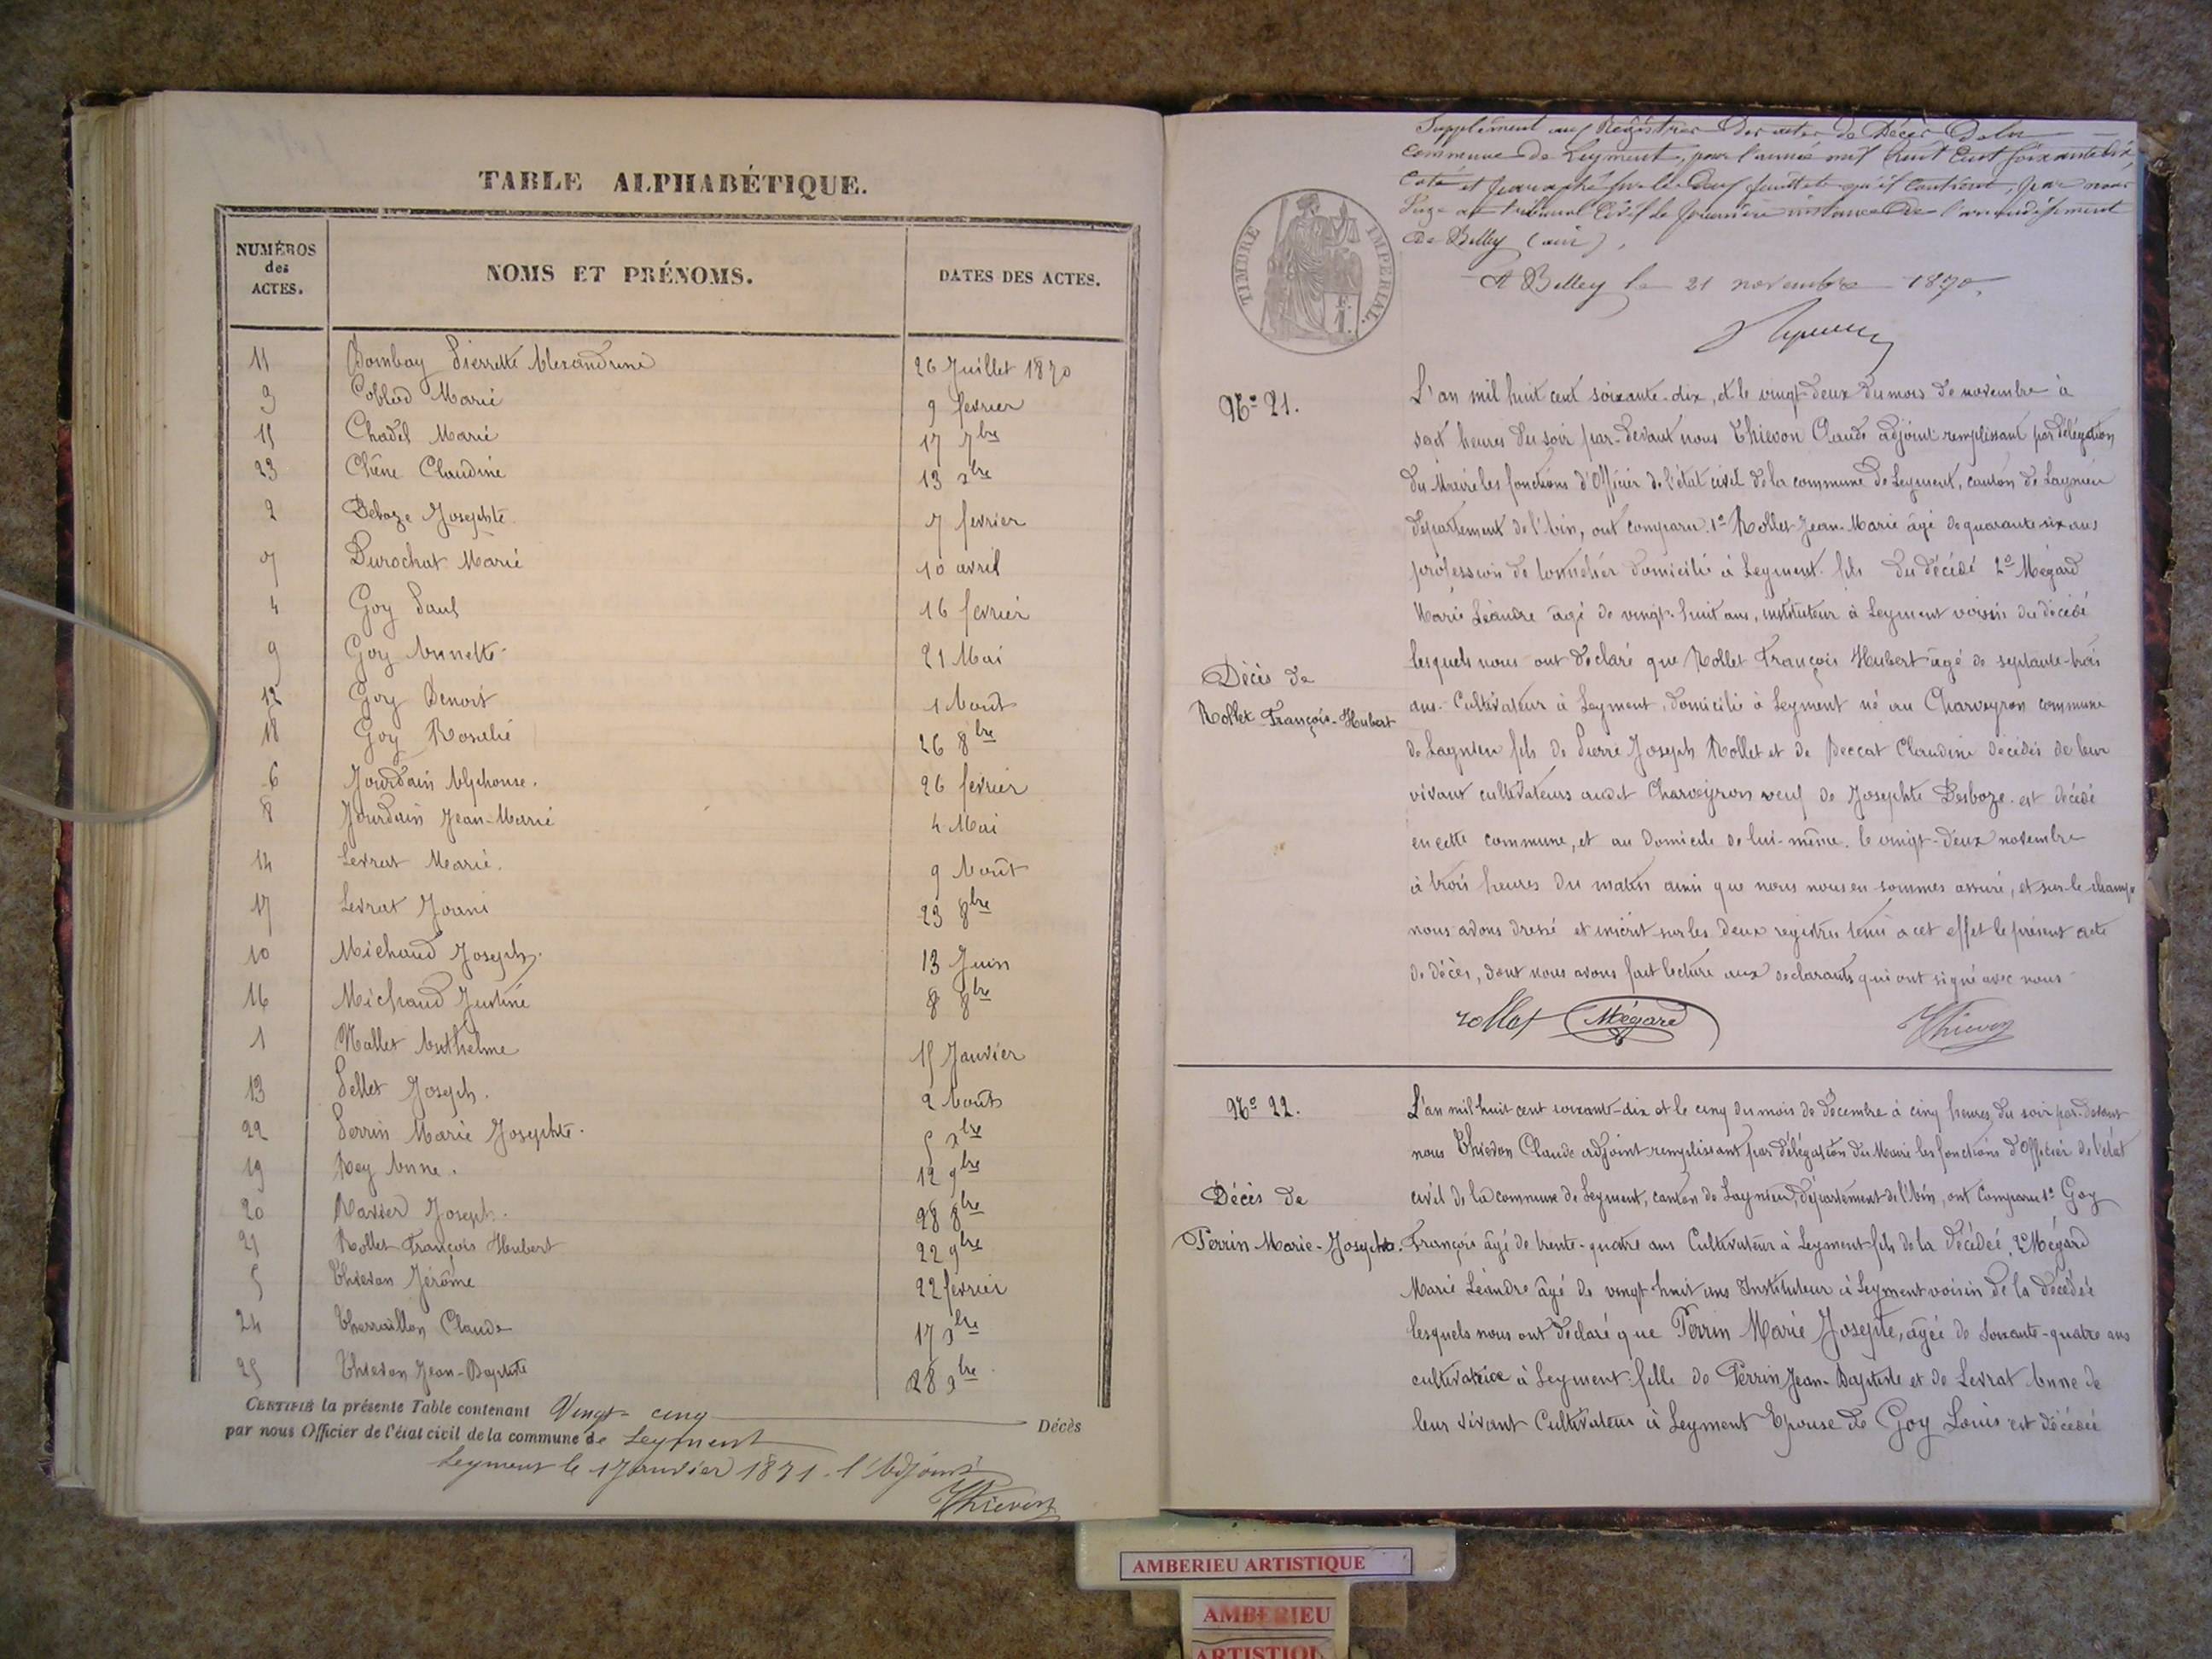 TABLE ALPHABÉTIQUE.
NUMÉROS des ACTES. NOMS ET PRÉNOMS. DATES DES ACTES.
11 Bombay Pierrette Alexandrine 26 Juillet 1870
3 Coblod Marie 9 fevrier
15 Chadel Marie 17 7bre
23 Chêne Claudine 13 xbre
2 Deboze Josephte 7 fevrier
7 Durochat Marie 10 avril
4 Goy Paul 16 fevrier
9 Goy Annette 21 Mai
12 Goy Benoit 1 Août
18 Goy Roselie 26 8bre
6 Jourdain Alphonse. 26 fevrier
8 Jourdain Jean-Marie 4 Mai
14 Levrat Marie. 9 Août
17 Levrat Joani 23 8bre
10 Michaud Joseph. 13 Juin
16 Michaud Justine 8 8bre
1 Mallet Anthelme 15 Janvier
13 Pellet Joseph. 2 Août
22 Perrin Marie Josephte. 5 xbre
19 Rey Anne. 12 9bre
20 Ravier Joseph. 28 8bre
21 Rollet François Hubert 22 9bre
5 Thievon Jérôme 22 fevrier
24 Therraillon Claude 17 xbre
25 Thievon Jean-Baptiste 28 xbre
CERTIFIÉ la présente Table contenant Vingt-cinq Décès
par nous Officier de l'état civil de la commune de Leyment
Leyment le 1 Janvier 1871. l'Adjoint
Thievon
Supplément aux Registres des actes de Décès de la
commune de Leyment, pour l'année mil huit cent soixante dix
coté et paraphé sur les deux feuillets qu'il contient, par nous
Juge au tribunal Civil de première instance de l'arrondissement
de Belley (ain),
A Belley le 21 novembre 1870
TIMBRE IMPERIAL.
No 21.
Décès de
Rollet François-Hubert
L'an mil huit cent soixante-dix, et le vingt-deux du mois de novembre à
sept heures du soir par-devant nous Thievon Claude adjoint remplissant par délégation
du Maire les fonctions d'Officier de l'état civil de la commune de Leyment, canton de Lagnieu
département de l'Ain, ont comparu 1o Rollet Jean-Marie âgé de quarante-six ans
profession de tonnelier domicilié à Leyment fils du décédé 2o Mégard
Marie Léandre âgé de vingt-huit ans, instituteur à Leyment voisin du décédé
lesquels nous ont déclaré que Rollet François Hubert âgé de septante-trois
ans Cultivateur à Leyment, domicilié à Leyment né au Charveyron commune
de Lagnieu fils de Pierre Joseph Rollet et de Peccat Claudine décédés de leur
vivant cultivateurs audit Charveyron veuf de Josephte Desboze est décédé
en cette commune, et au domicile de lui-même le vingt-deux novembre
à trois heures du matin ainsi que nous nous en sommes assuré, et sur-le-champ
nous avons dressé et inscrit sur les deux registres tenu a cet effet le présent acte
de décès, dont nous avons fait lecture aux declarants qui ont signé avec nous
rollet Mégard Thievon
No 22.
Décès de
Perrin Marie-Josephte.
L'an mil huit cent soixante-dix et le cinq du mois de décembre à cinq heures du soir par-devant
nous Thievon Claude adjoint remplissant par délégation du Maire les fonctions d'Officier de l'état
civil de la commune de Leyment, canton de Lagnieu, département de l'Ain, ont comparu 1o Goy
François âgé de trente-quatre ans Cultivateur à Leyment fils de la décédeé, 2o Mégard
Marie Léandre âgé de vingt-huit ans Instituteur à Leyment voisin de la décédée
lesquels nous ont déclaré que Perrin Marie Josepte, âgée de soixante-quatre ans
cultivatrice à Leyment fille de Perrin Jean-Baptiste et de Levrat Anne de
leur vivant Cultivateur à Leyment Epouse de Goy Louis est décédée
AMBERIEU ARTISTIQUE
AMBERIEU
ARTISTIQUE